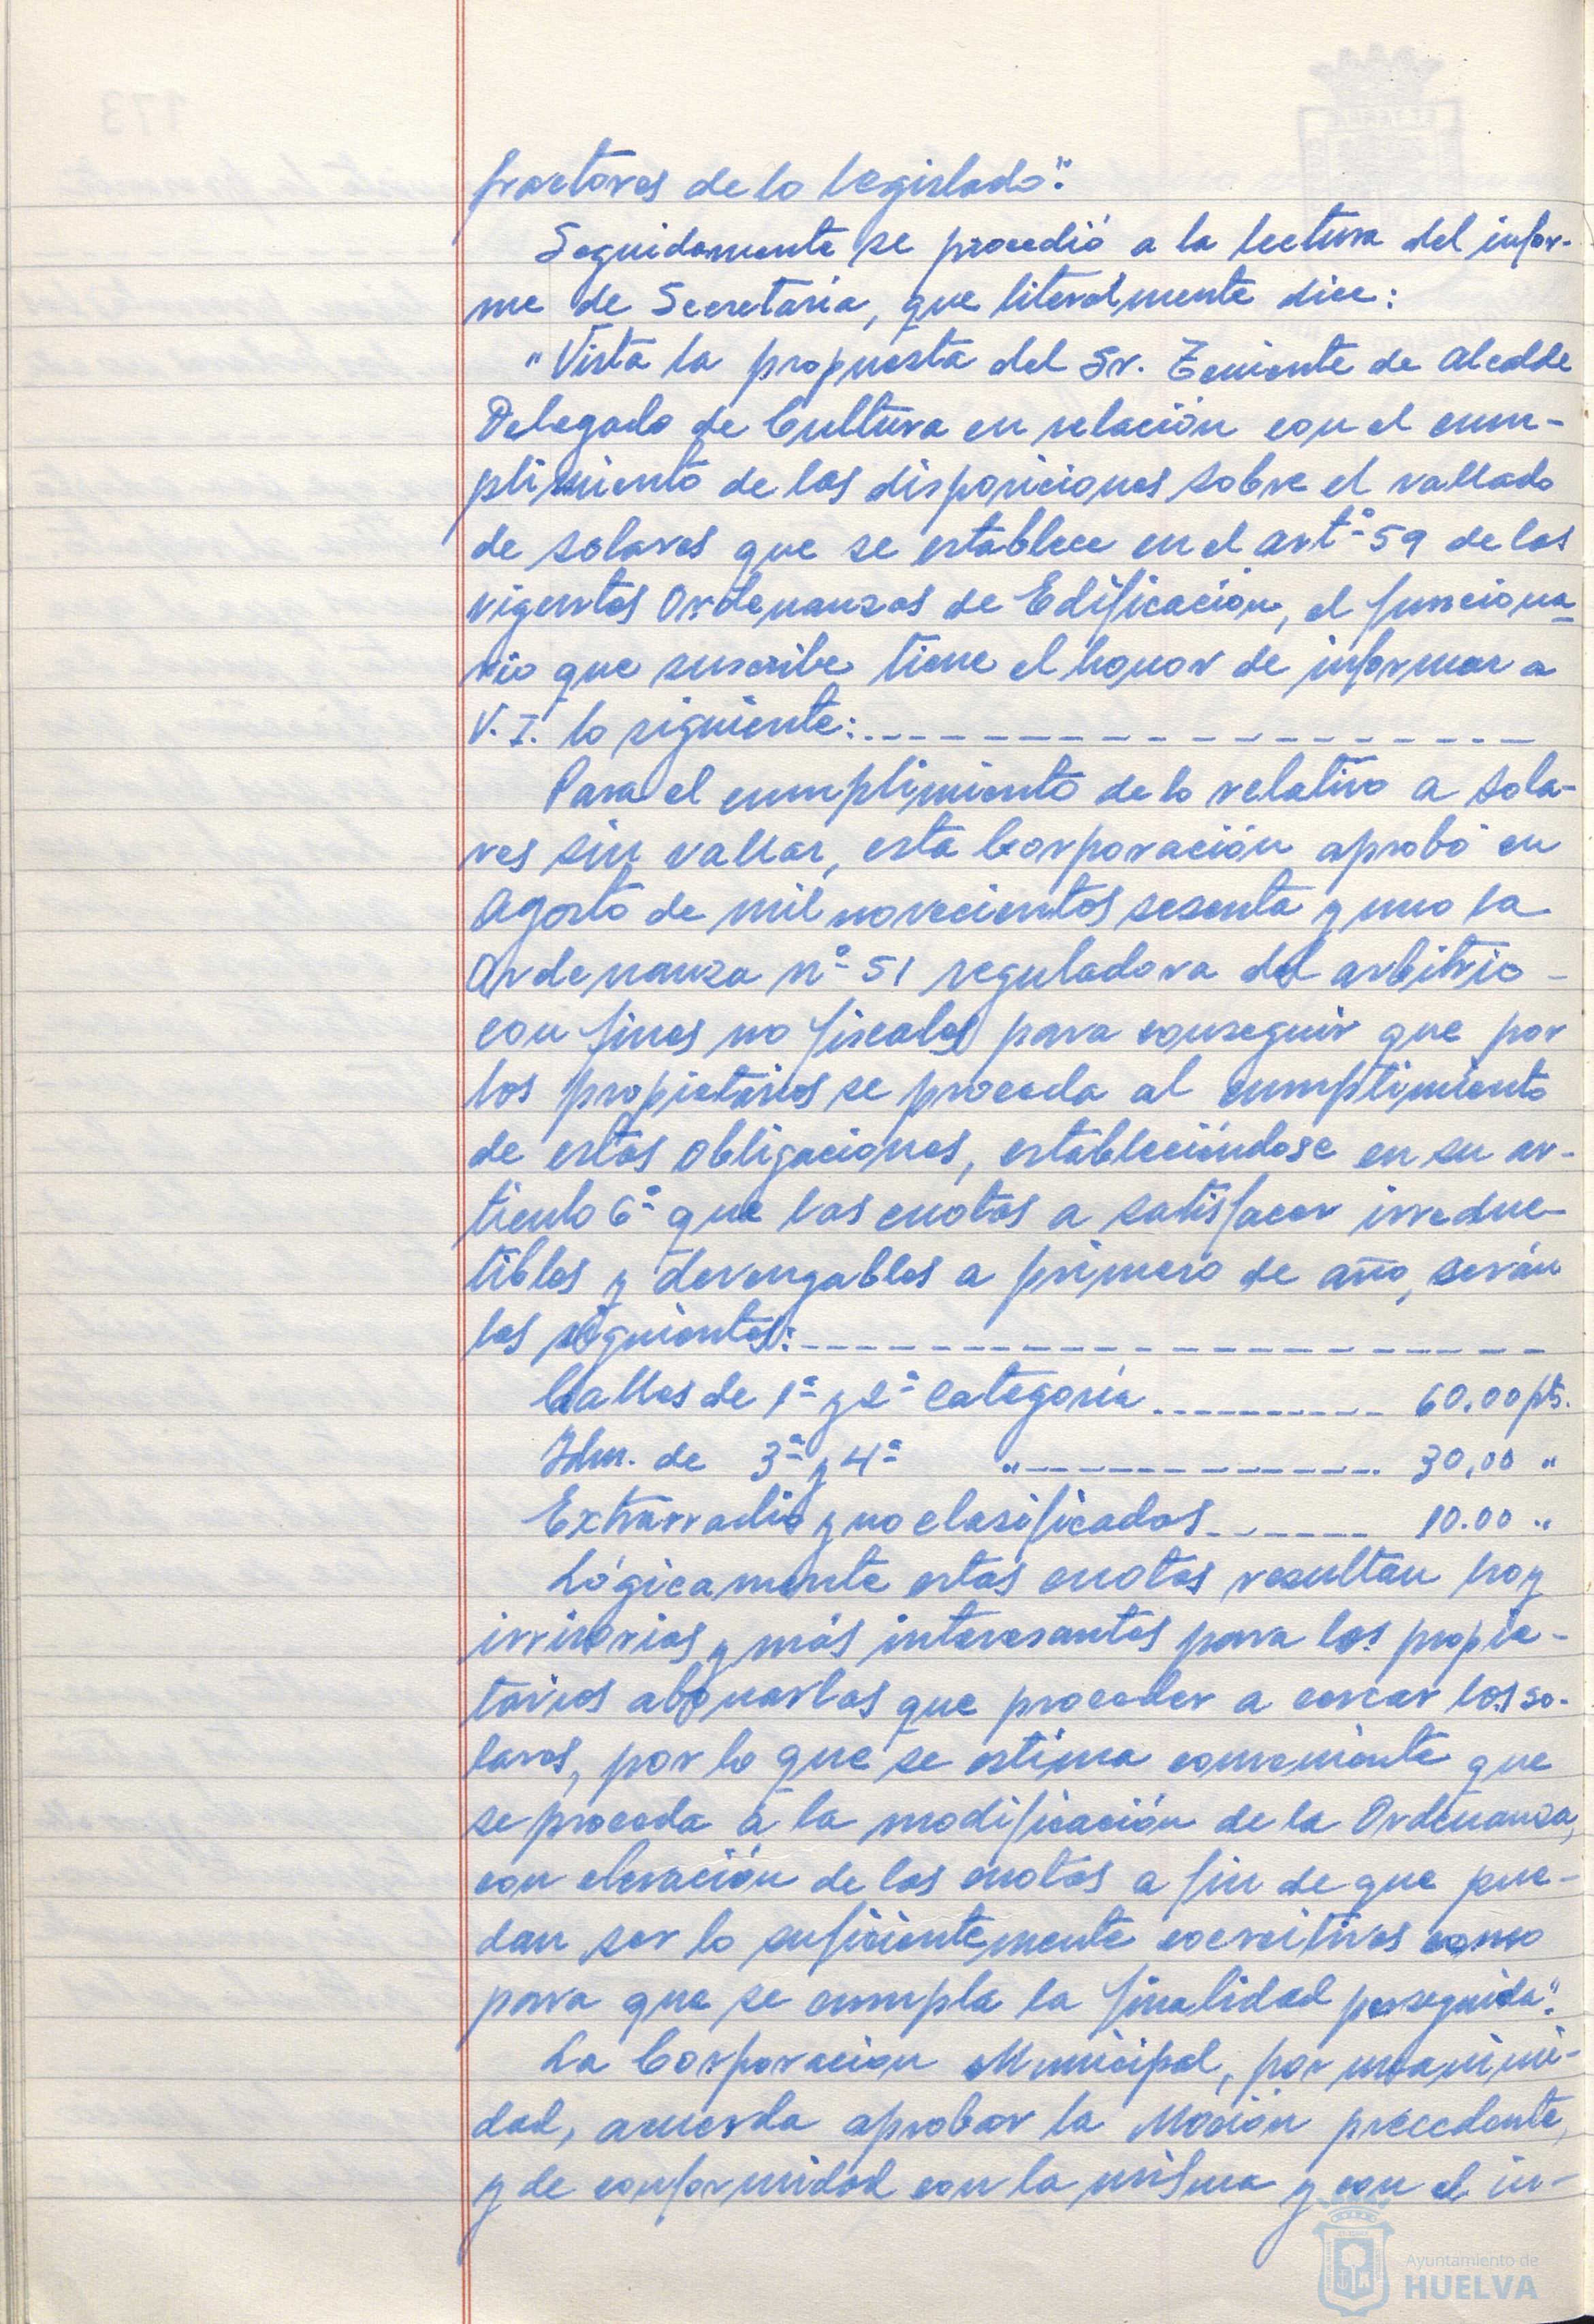 fractores de lo legislado".
Seguidamente se procedió a la lectura del infor-
me de Secretaría, que literalmente dice:
"Vista la propuesta del Sr. Teniente de Alcalde
Delegado de Cultura en relación con el cum-
plimiento de las disposiciones sobre el vallado
de solares que se establece en el artº 59 de las
vigentes Ordenanzas de Edificación, el funciona-
rio que suscribe tiene el honor de informar a
V.I. lo siguiente:
Para el cumplimiento de lo relativo a sola-
res sin vallar, esta Corporación aprobó en
Agosto de mil novecientos sesenta y uno la
Ordenanza nº 51 reguladora del arbitrio -
con fines no fiscales para conseguir que por
los propietarios se proceda al cumplimiento
de estas obligaciones, estableciéndose en su ar-
tículo 6º que las cuotas a satisfacer irreduc-
tibles y devengables a primero de año, serán
las siguientes:
Calles de 1ª y 2ª Categoría 60.00 pts.
Idm. de 3ª y 4ª " 30,00 "
Extrarradio y no clasificadas 10.00 "
Lógicamente estas cuotas resultan hoy
irrisorias y más interesantes para los propie-
tarios abonarlas que proceder a cercar los so-
lares, por lo que se estima conveniente que
se proceda a la modificación de la Ordenanza,
con elevación de las cuotas a fin de que pue-
dan ser lo suficientemente coercitivas como
para que se cumpla la finalidad perseguida".
La Corporación Municipal, por unanimi-
dad, acuerda aprobar la Moción precedente,
y de conformidad con la misma y con el in-
Ayuntamiento de
HUELVA